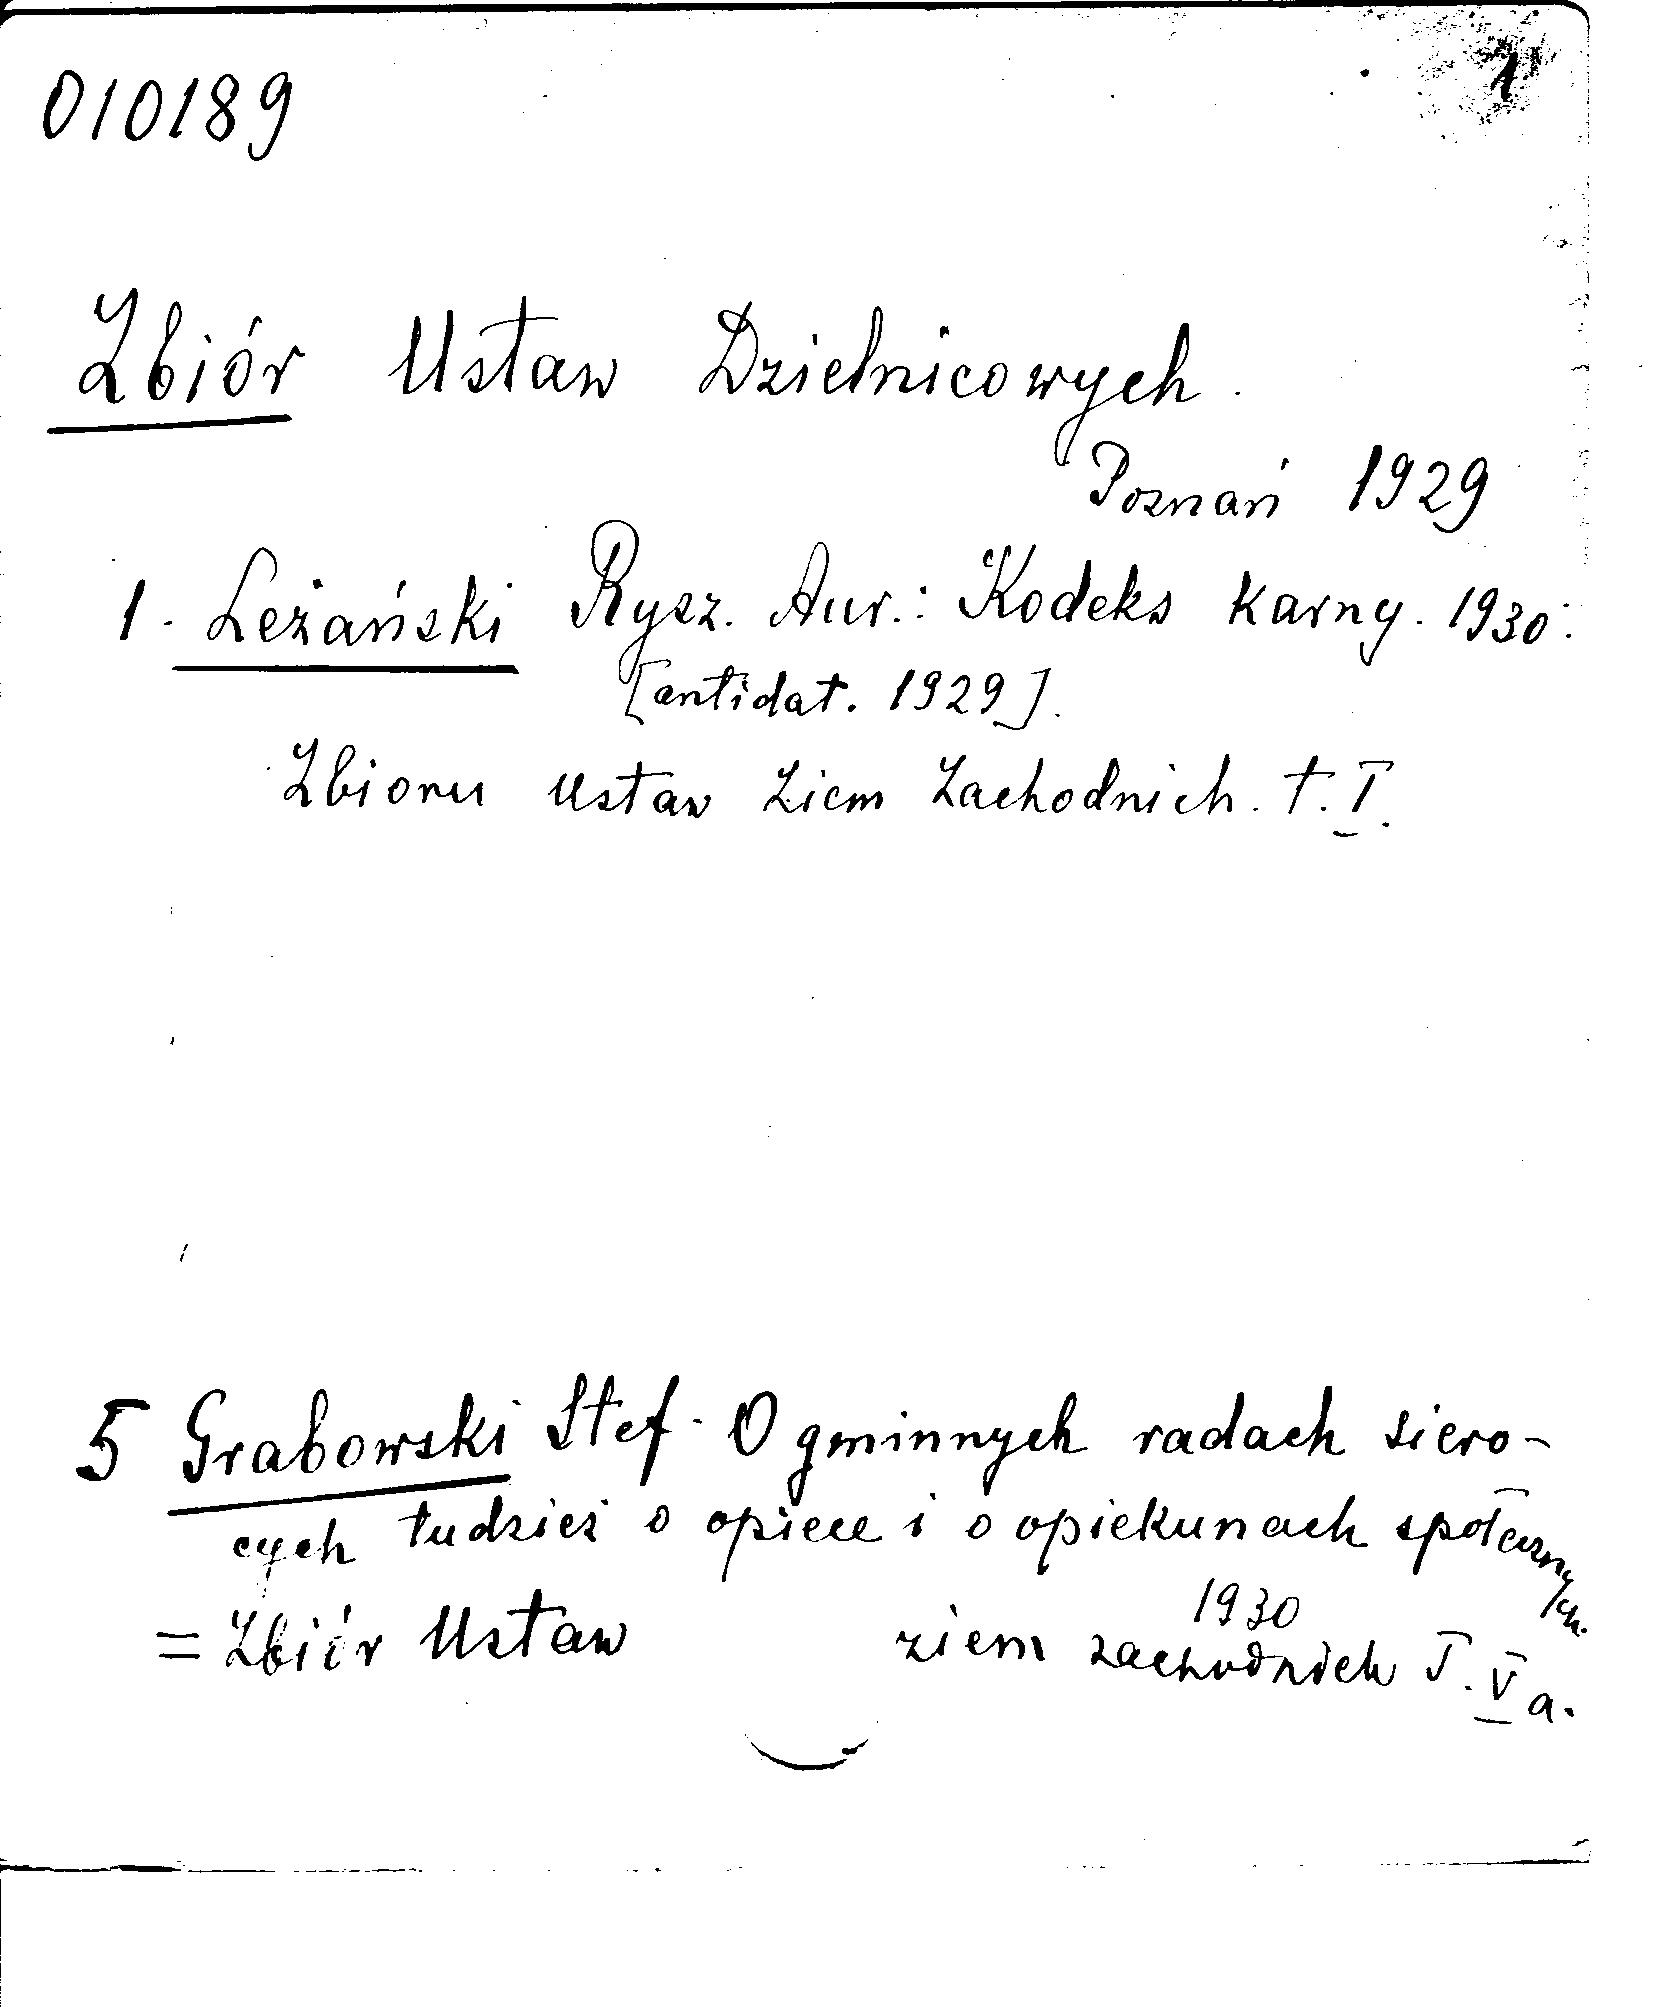 1
010189
Zbiór Ustaw Dzielnicowych.
Poznań 1929
1. Leżański Rysz. Aur.: Kodeks karny. 1930.
[antidat. 1929].
Zbioru ustaw Ziem Zachodnich. t. I.
5 Grabowski Stef. O gminnych radach siero-
cych tudzież o opiece i o opiekunach społecznych.
1930
= Zbiór Ustaw ziem zachodnich T. V a.